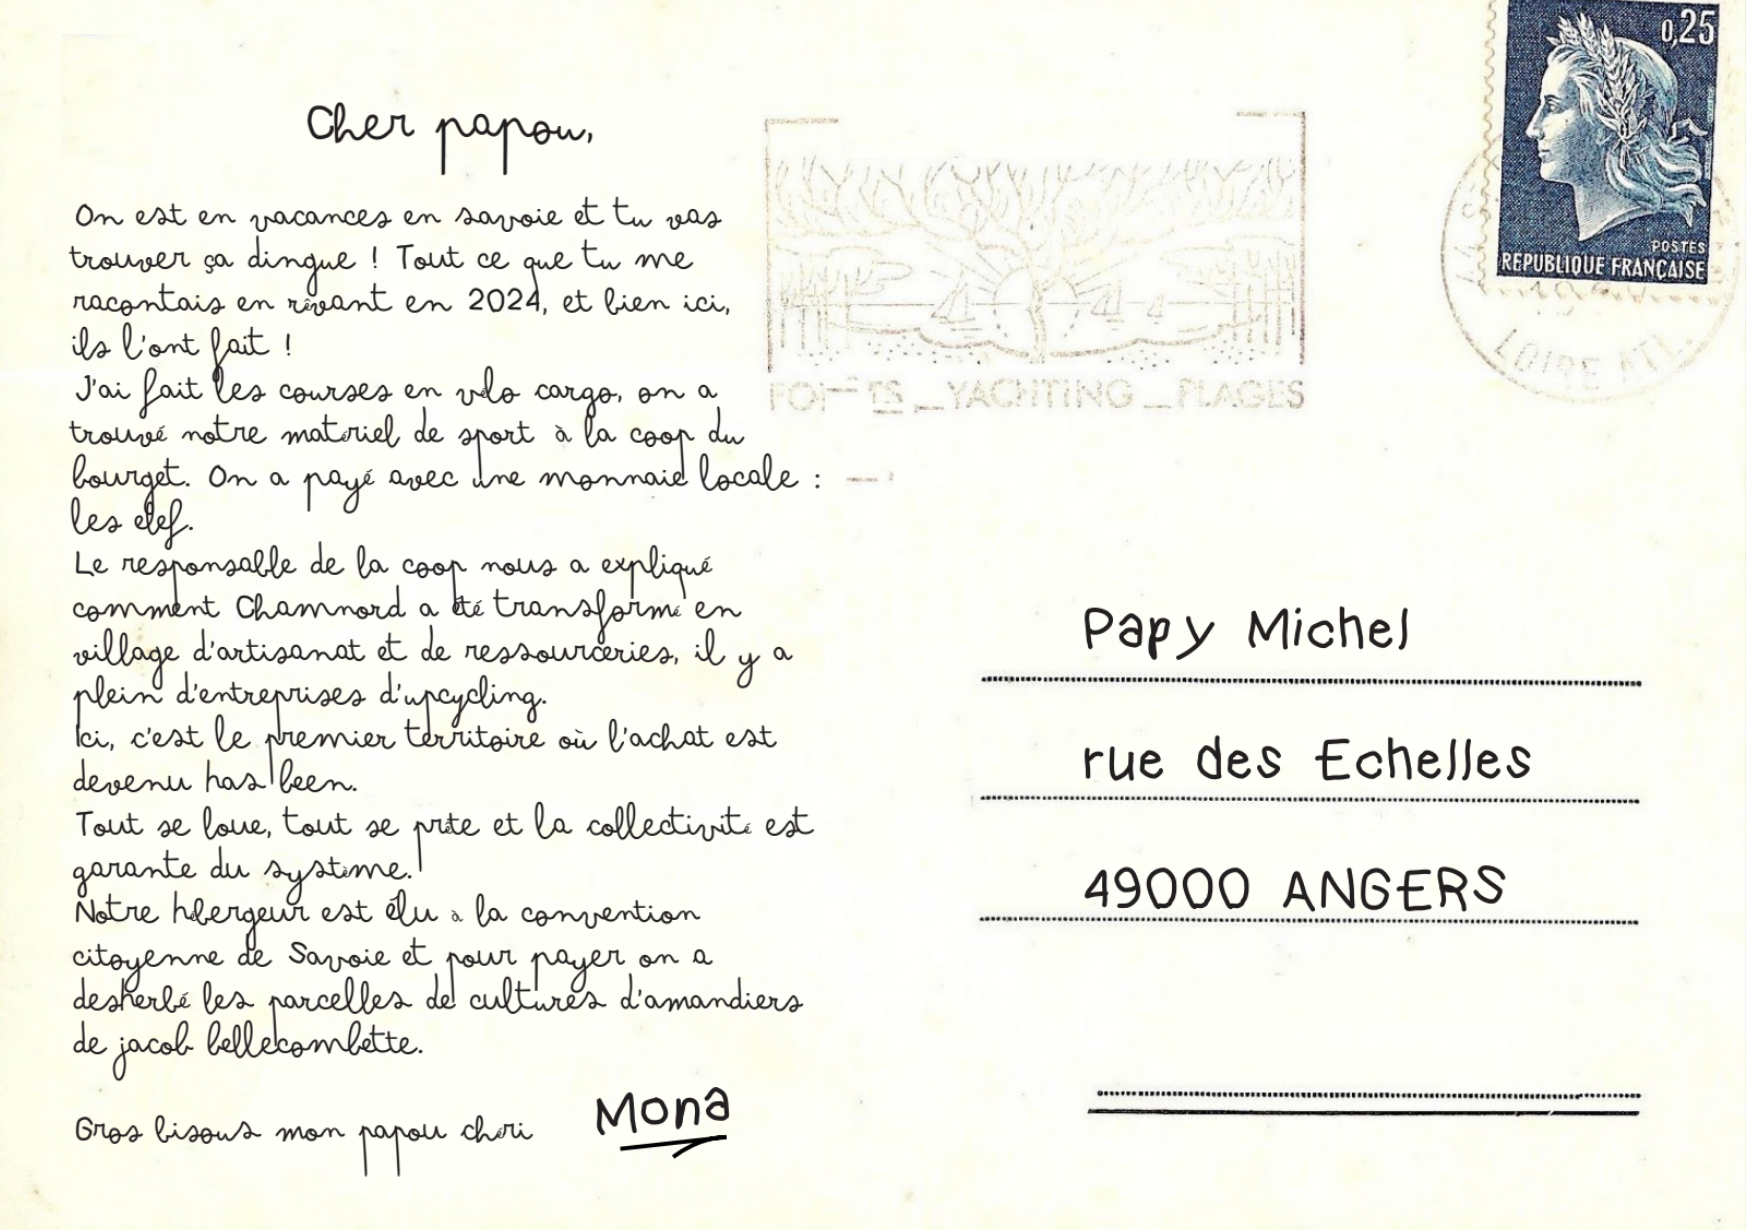 Cher papou,
On est en vacances en savoie et tu vas
trouver ça dingue ! Tout ce que tu me
racontais en rêvant en 2024, et bien ici,
ils l'ont fait !
J'ai fait les courses en vélo cargo, on a
trouvé notre matériel de sport à la coop du
bourget. On a payé avec une monnaie locale :
les elef.
Le responsable de la coop nous a expliqué
comment Chamnord a été transformé en
village d'artisanat et de ressourceries, il y a
plein d'entreprises d'upcycling.
Ici, c'est le premier territoire où l'achat est
devenu has been.
Tout se loue, tout se prête et la collectivité est
garante du système.
Notre hébergeur est élu à la convention
citoyenne de Savoie et pour payer on a
desherbé les parcelles de cultures d'amandiers
de jacob bellecombette.
Gros bisous mon papou chéri
Mona
YACHTING _ PLAGES
0,25
POSTES
REPUBLIQUE FRANÇAISE
LOIRE ATL.
Papy Michel
rue des Echelles
49000 ANGERS